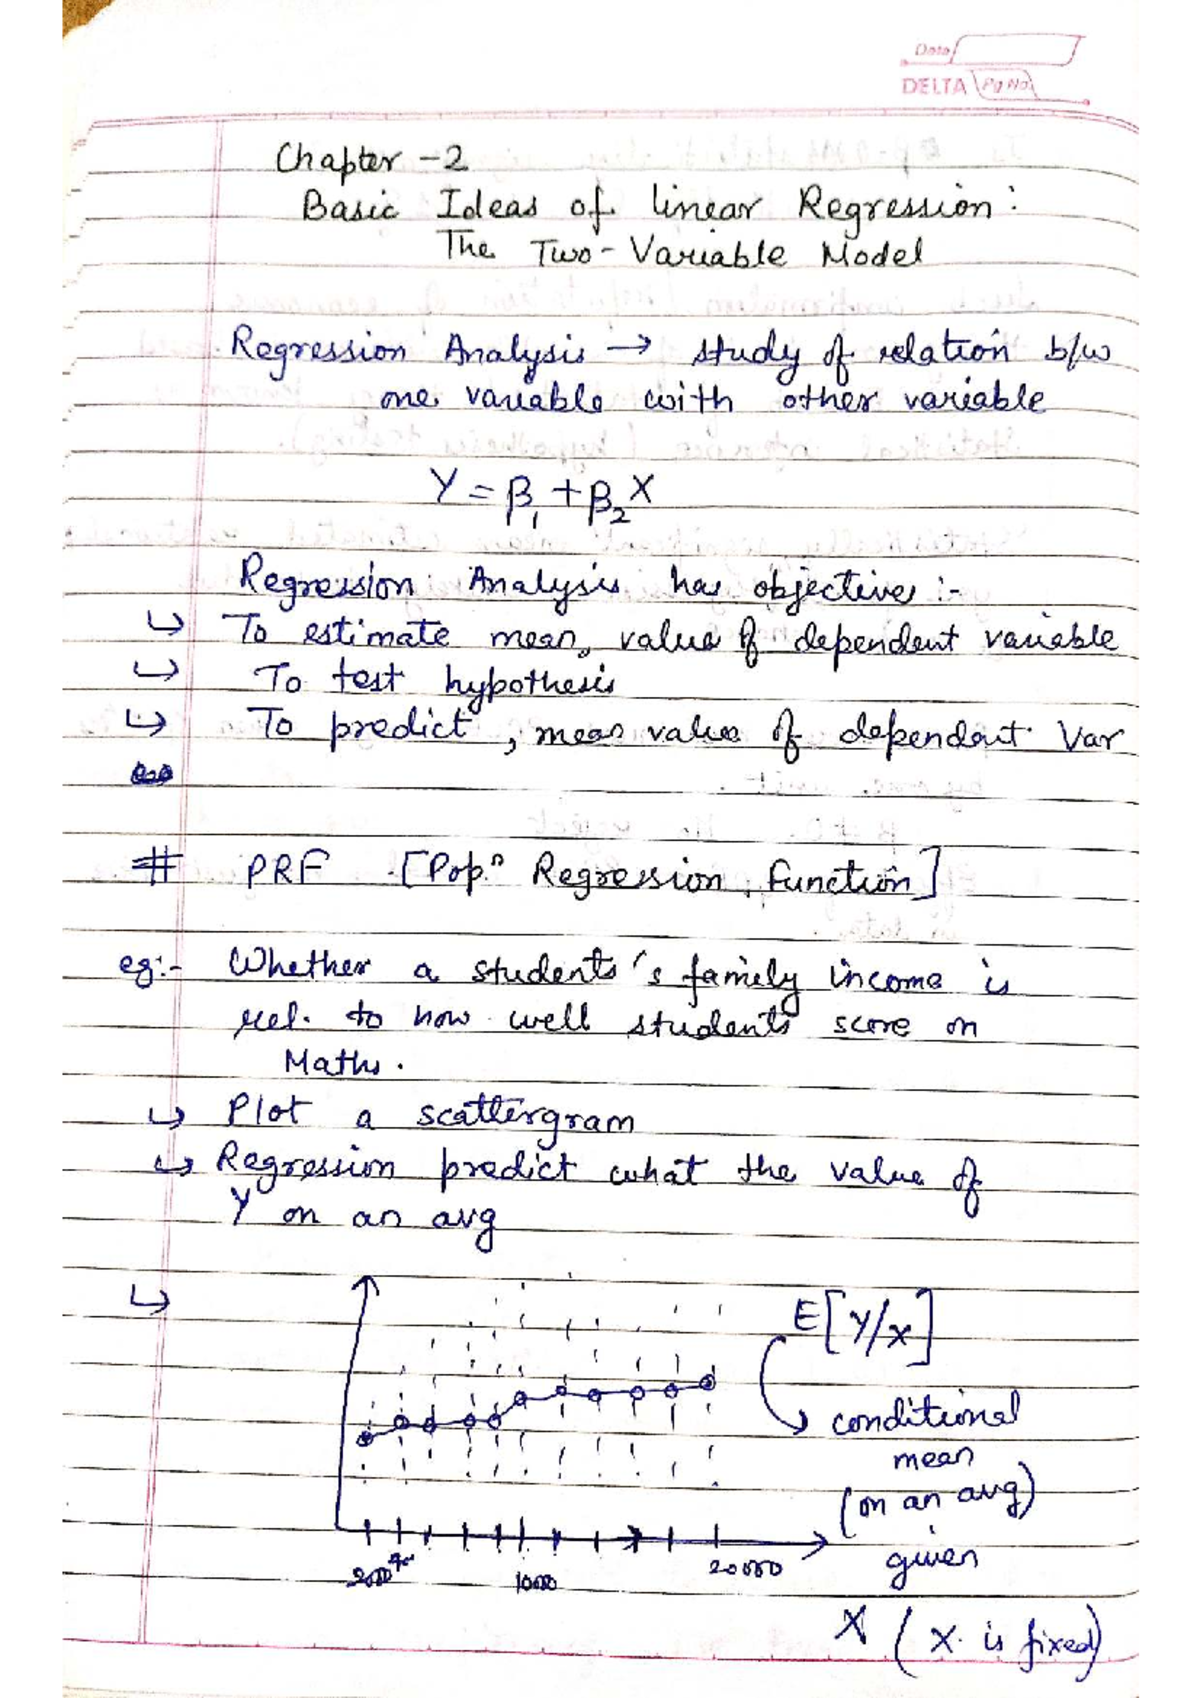 Date
DELTA Pg No.
Chapter -2
Basic Ideas of linear Regression:
The Two-Variable Model
Regression Analysis → study of relation b/w
one variable with other variable
Y = β₁ + β₂X
Regression Analysis has objective :-
↳ To estimate mean value of dependent variable
↳ To test hypothesis
↳ To predict, mean value of dependent Var
# PRF [Popⁿ Regression function]
eg:- Whether a students's family income is
rel. to how well students score on
Maths.
↳ Plot a scattergram
↳ Regression predict what the value of
Y on an avg
↳ E[Y/X]
conditional
mean
(on an avg)
given
X (X is fixed)